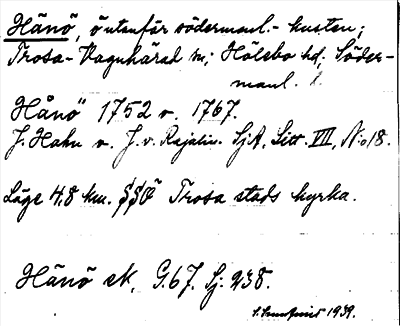 Hånö, ö utanför södermanl.- kusten;
Trosa-Vagnhärad sn; Hölebo hd; Söder-
manl. l.
Hånö" 1752 o. 1767.
J. Hahn o. J. v. Rajalin. SjA, Litt. VIII, No 18.
Läge 4,8 km. SSÖ Trosa stads kyrka.
Hånö ek, G.67. Sj. 238.
1939.